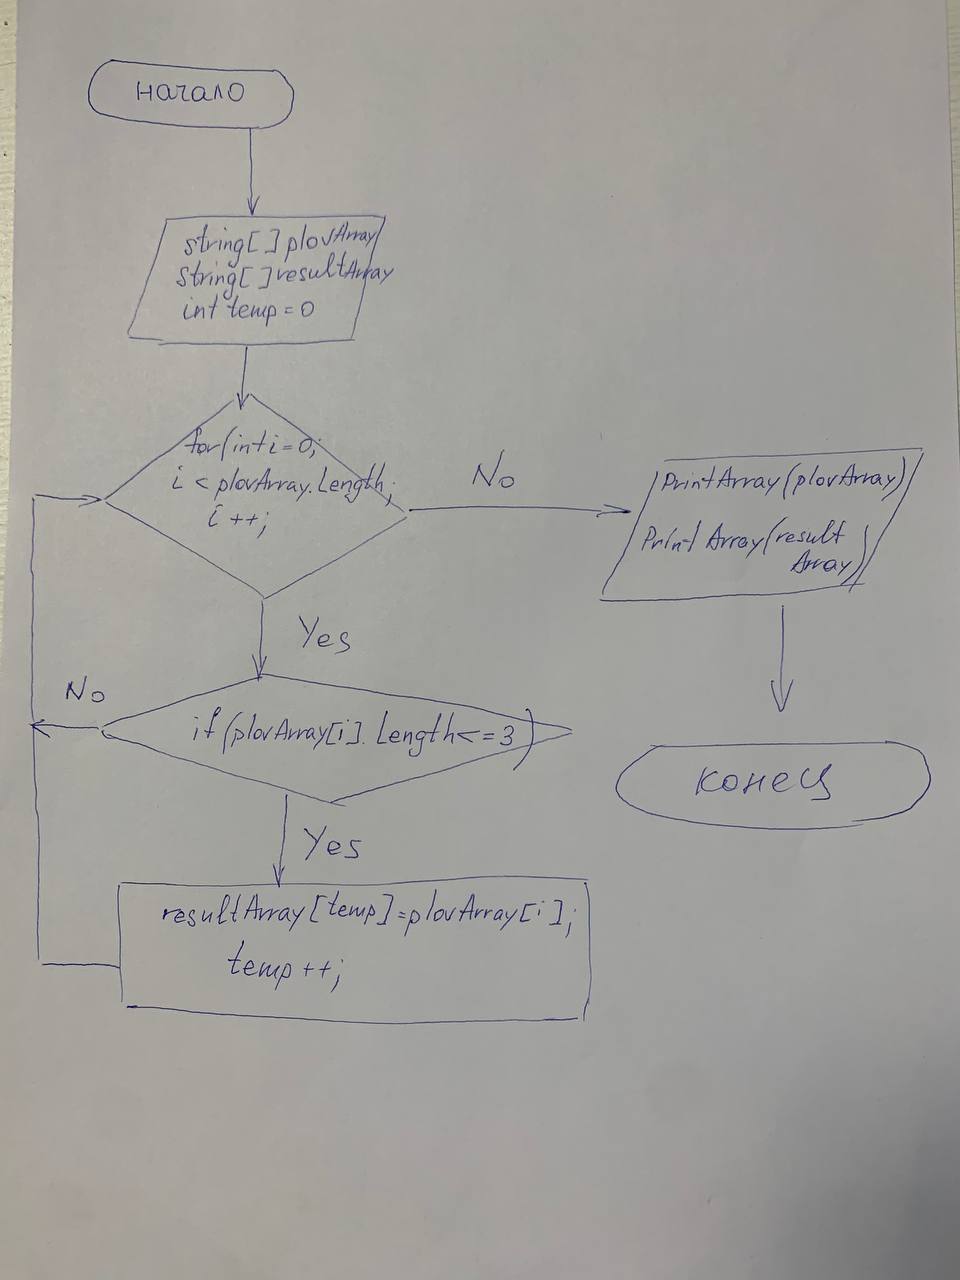 начало
string[ ] plovArray
string[ ] resultArray
int temp = 0
for(int i=0;
i < plovArray.Length;
i ++;
No
Yes
PrintArray(plovArray)
Print Array(result
Array)
No
if (plovArray[i]. Length<=3)
Yes
конец
resultArray[temp]=plovArray[i];
temp++;